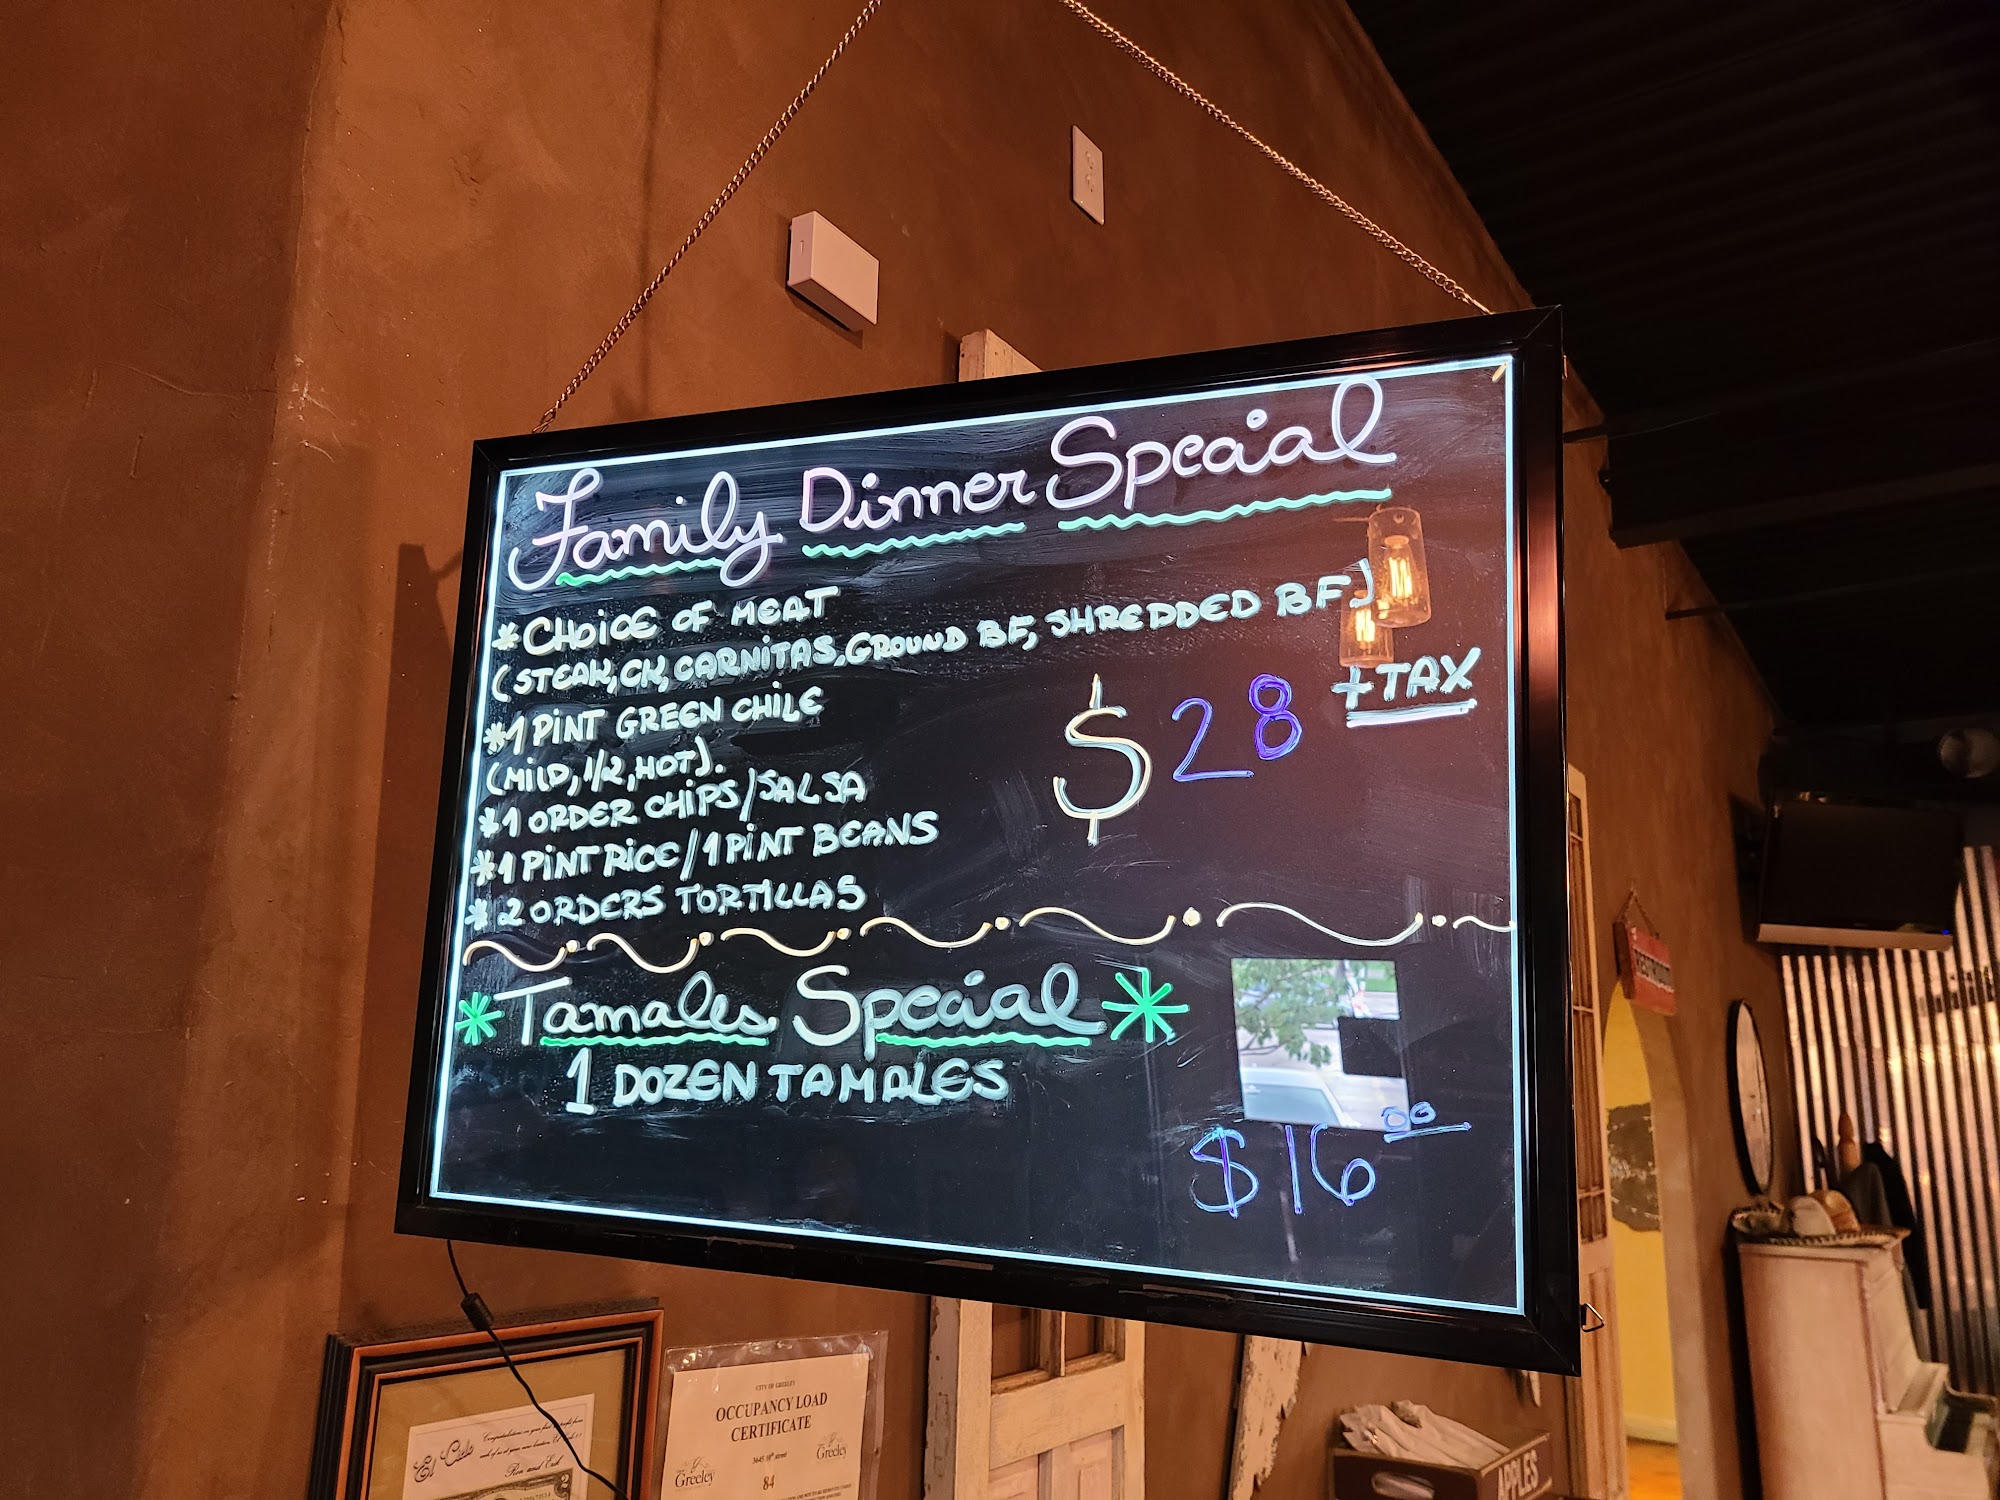 Family Dinner Special
*CHOICE OF MEAT
(STEAK, CK, CARNITAS, GROUND BF, SHREDDED BF)
*1 PINT GREEN CHILE
(MILD, 1/2, HOT).
*1 ORDER CHIPS/SALSA
*1 PINT RICE/1 PINT BEANS
*2 ORDERS TORTILLAS
$28 +TAX
*Tamales Special*
1 DOZEN TAMALES
$16.00
CITY OF GREELEY
OCCUPANCY LOAD
CERTIFICATE
3645 10th street
Greeley
Greeley
84
Congratulations on your
El Cielo
Ron and Esk
2
APPLES